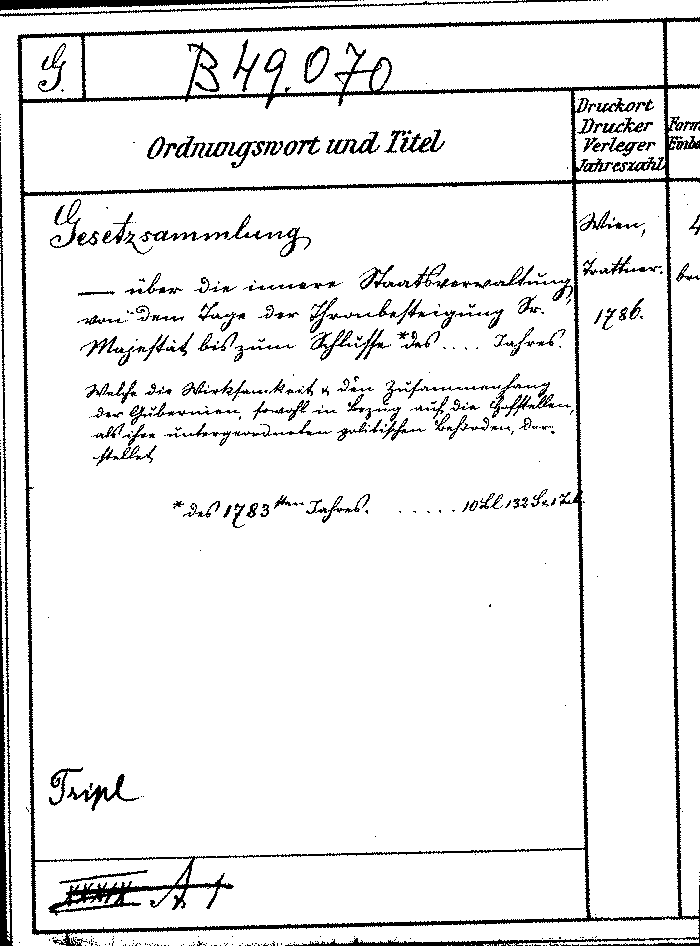 G.
B 49.070
Ordnungswort und Titel
Druckort
Drucker
Verleger
Jahreszahl
Form
Einba
Gesetzsammlung
Wien,
4
— über die innere Staatsverwaltung,
Trattner.
bro
von dem Tage der Thronbesteigung Sr.
1786.
Majestät bis zum Schlusse *des .... Jahres.
Welche die Wirksamkeit & den Zusammenhang
der Gubernien, sowohl in Bezug auf die Hofstellen,
als ihre untergeordneten politischen Behörden, dar-
stellet
* des 1783sten Jahres. ..... 10 Bl 132 S. 1 Tab.
Tripl
A 1